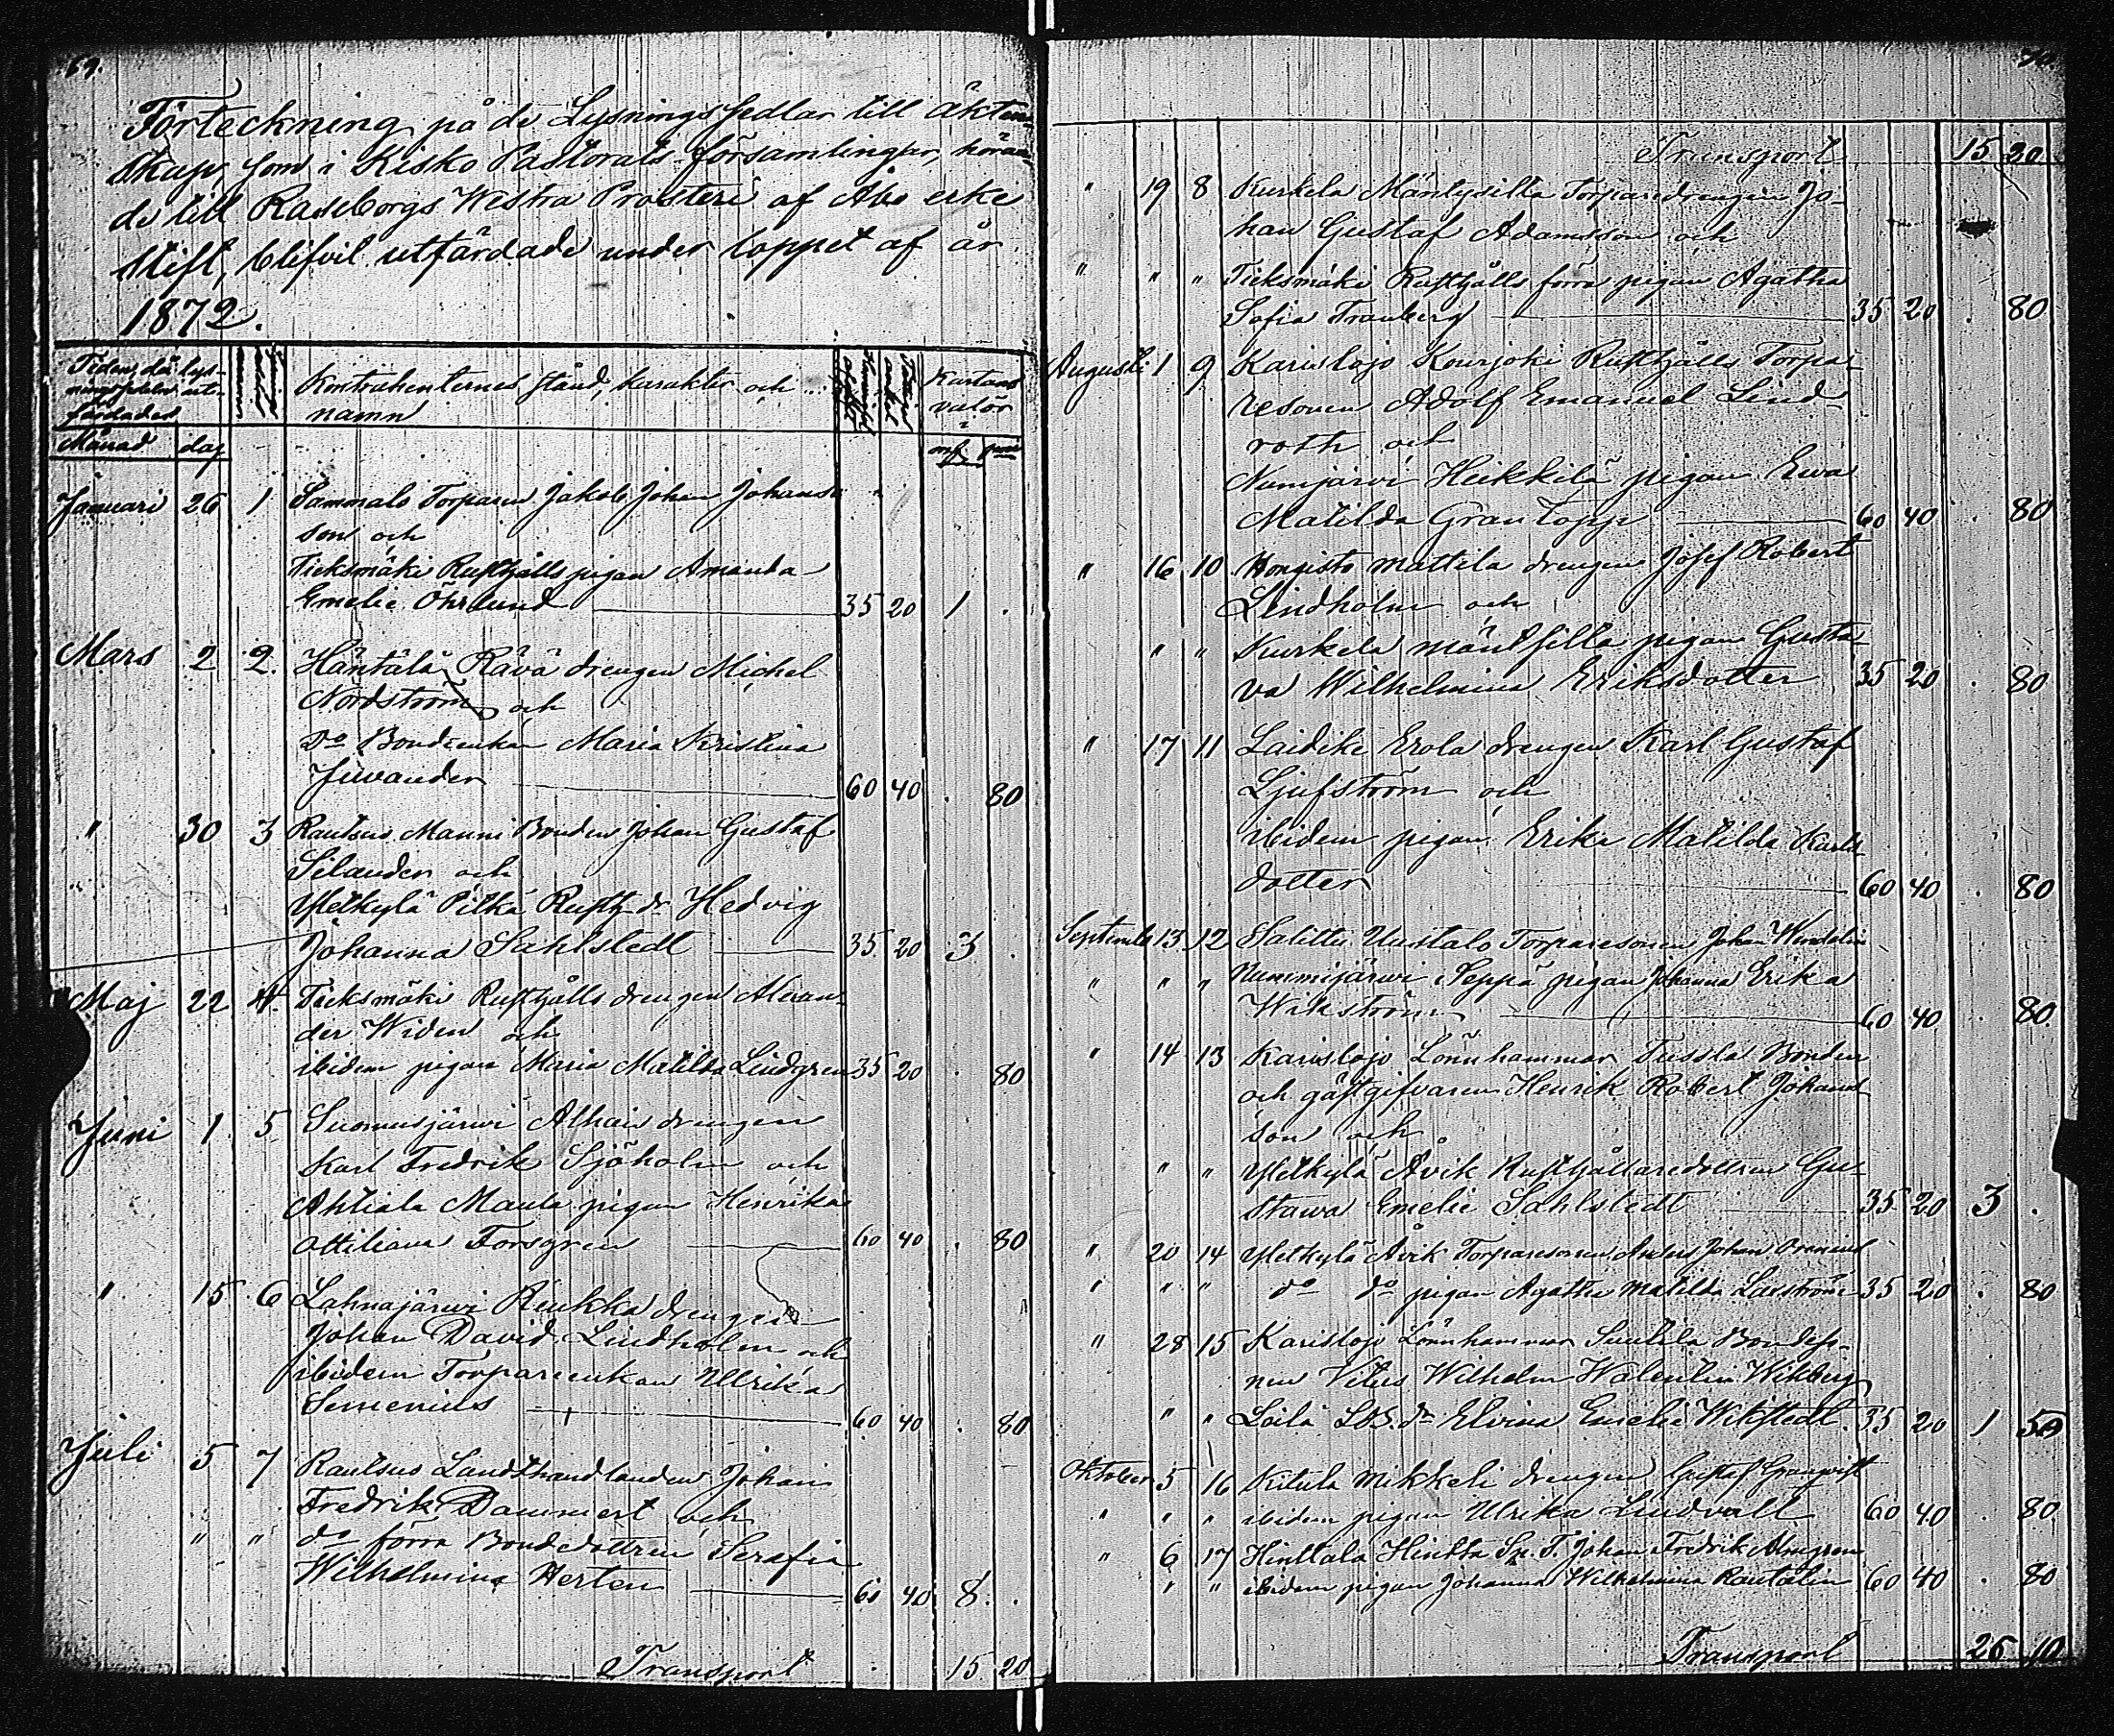 69.
Förteckning på de Lysningssedlar till äkten-
skap, som i Kisko Pastorats församlingar, höran-
de till Raseborgs Westra Prosteri af Åbo erke
stift, blifvit utfärdade under loppet af år
1872.
Tiden, då lys-
ningssedeln ut-
färdades
Månad dag
Kontrahenternes stånd, karakter och
namn
Kartans
valör
mk
Januari 26 1 Sammalo Torparen Jakob Johan Johans-
son och
Ticksmäki Rusthålls pigan Amanda
Emelie Öhrlund 35 20 1 .
Mars 2 2. Häntälä Rävä drengen Michel
Nordström och
do Bondeenkan Maria Kristina
Juvander 60 40 . 80
" 30 3 Rautsuo Manni Bonden Johan Gustaf
Silander och
Yletkylä Pitkä Rusth. dr Hedvig
Johanna Sahlstedt 35 20 3 .
Maj 22 4. Ticksmäki Rusthålls drengen Alexan-
der Widen och
ibidem pigan Maria Matilda Lindgren 35 20 . 80
Juni 1 5 Suomusjärwi Alhais drengen
Karl Fredrik Sjöholm och
Ahtiala Maula pigan Henrika
Ottiliana Forsgren 60 40 . 80
" 15 6 Lahnajärwi Reukka drengen
Johan David Lindholm och
ibidem Torpareenkan Ulrika
Semenius 60 40 . 80
Juli 5 7 Rautsuo Landthandlanden Johan
Fredrik Dammert och
" " do förra Bondedottren Serafia
Wilhelmina Herten 60 40 8 .
Transport 15 20
70
Transport 15 20
" 19 8 Kurkela Mäntysilta Torparedrengen Jo-
han Gustaf Adamsson och
" " " Ticksmäki Rusthålls förra pigan Agatha
Sofia Tranberg 35 20 . 80
Augusti 1 9 Karislojo Kourjoki Rusthålls Torpa-
resonen Adolf Emanuel Lind-
roth och
Numjärvi Heikkilä pigan Ewa
Matilda Grantopp 60 40 . 80
" 16 10 Hongisto Mattila drengen Josef Robert
Lindholm och
" " Kurkela pigan Gusta-
va Wilhelmina Eriksdotter 35 20 . 80
" 17 11 Laidike Erola drengen Karl Gustaf
Ljufström och
ibidem pigan Erika Matilda Karls-
dotter 60 40 . 80
September 13 12 Salittu Uustalo Torparesonen Johan Wendelin
" " " Nummijärwi Seppä pigan Johanna Erika
Wikström 60 40 . 80
" 14 13 Karislojo Lönnhammar Tussla Bonden
och gästgifvaren Henrik Robert Johans-
son och
" " Yletkylä Åvik Rusthållaredottren Gu-
stawa Emelie Sahlstedt 35 20 3 .
" 20 14 Yletkylä Åvik Torparesonen Anders Johan
" " " do do pigan Agatha Matilda Laxström 35 20 . 80
" 28 15 Karislojo Lönnhammar Suutela Bondeso-
nen Vitus Wilhelm Walentin Wikberg
" " Leilä dr Elvina Emelie Wikstedt 35 20 1 50
Oktober 5 16 Kitula Mikkeli drengen Gustaf Granqvist
" " " ibidem pigan Ulrika Lindvall 60 40 . 80
" 6 17 Hinttala Hinttä Johan Fredrik Almgren
" " ibidem pigan Johanna Wilhelmina Rautalin 60 40 . 80
Transport 26 10